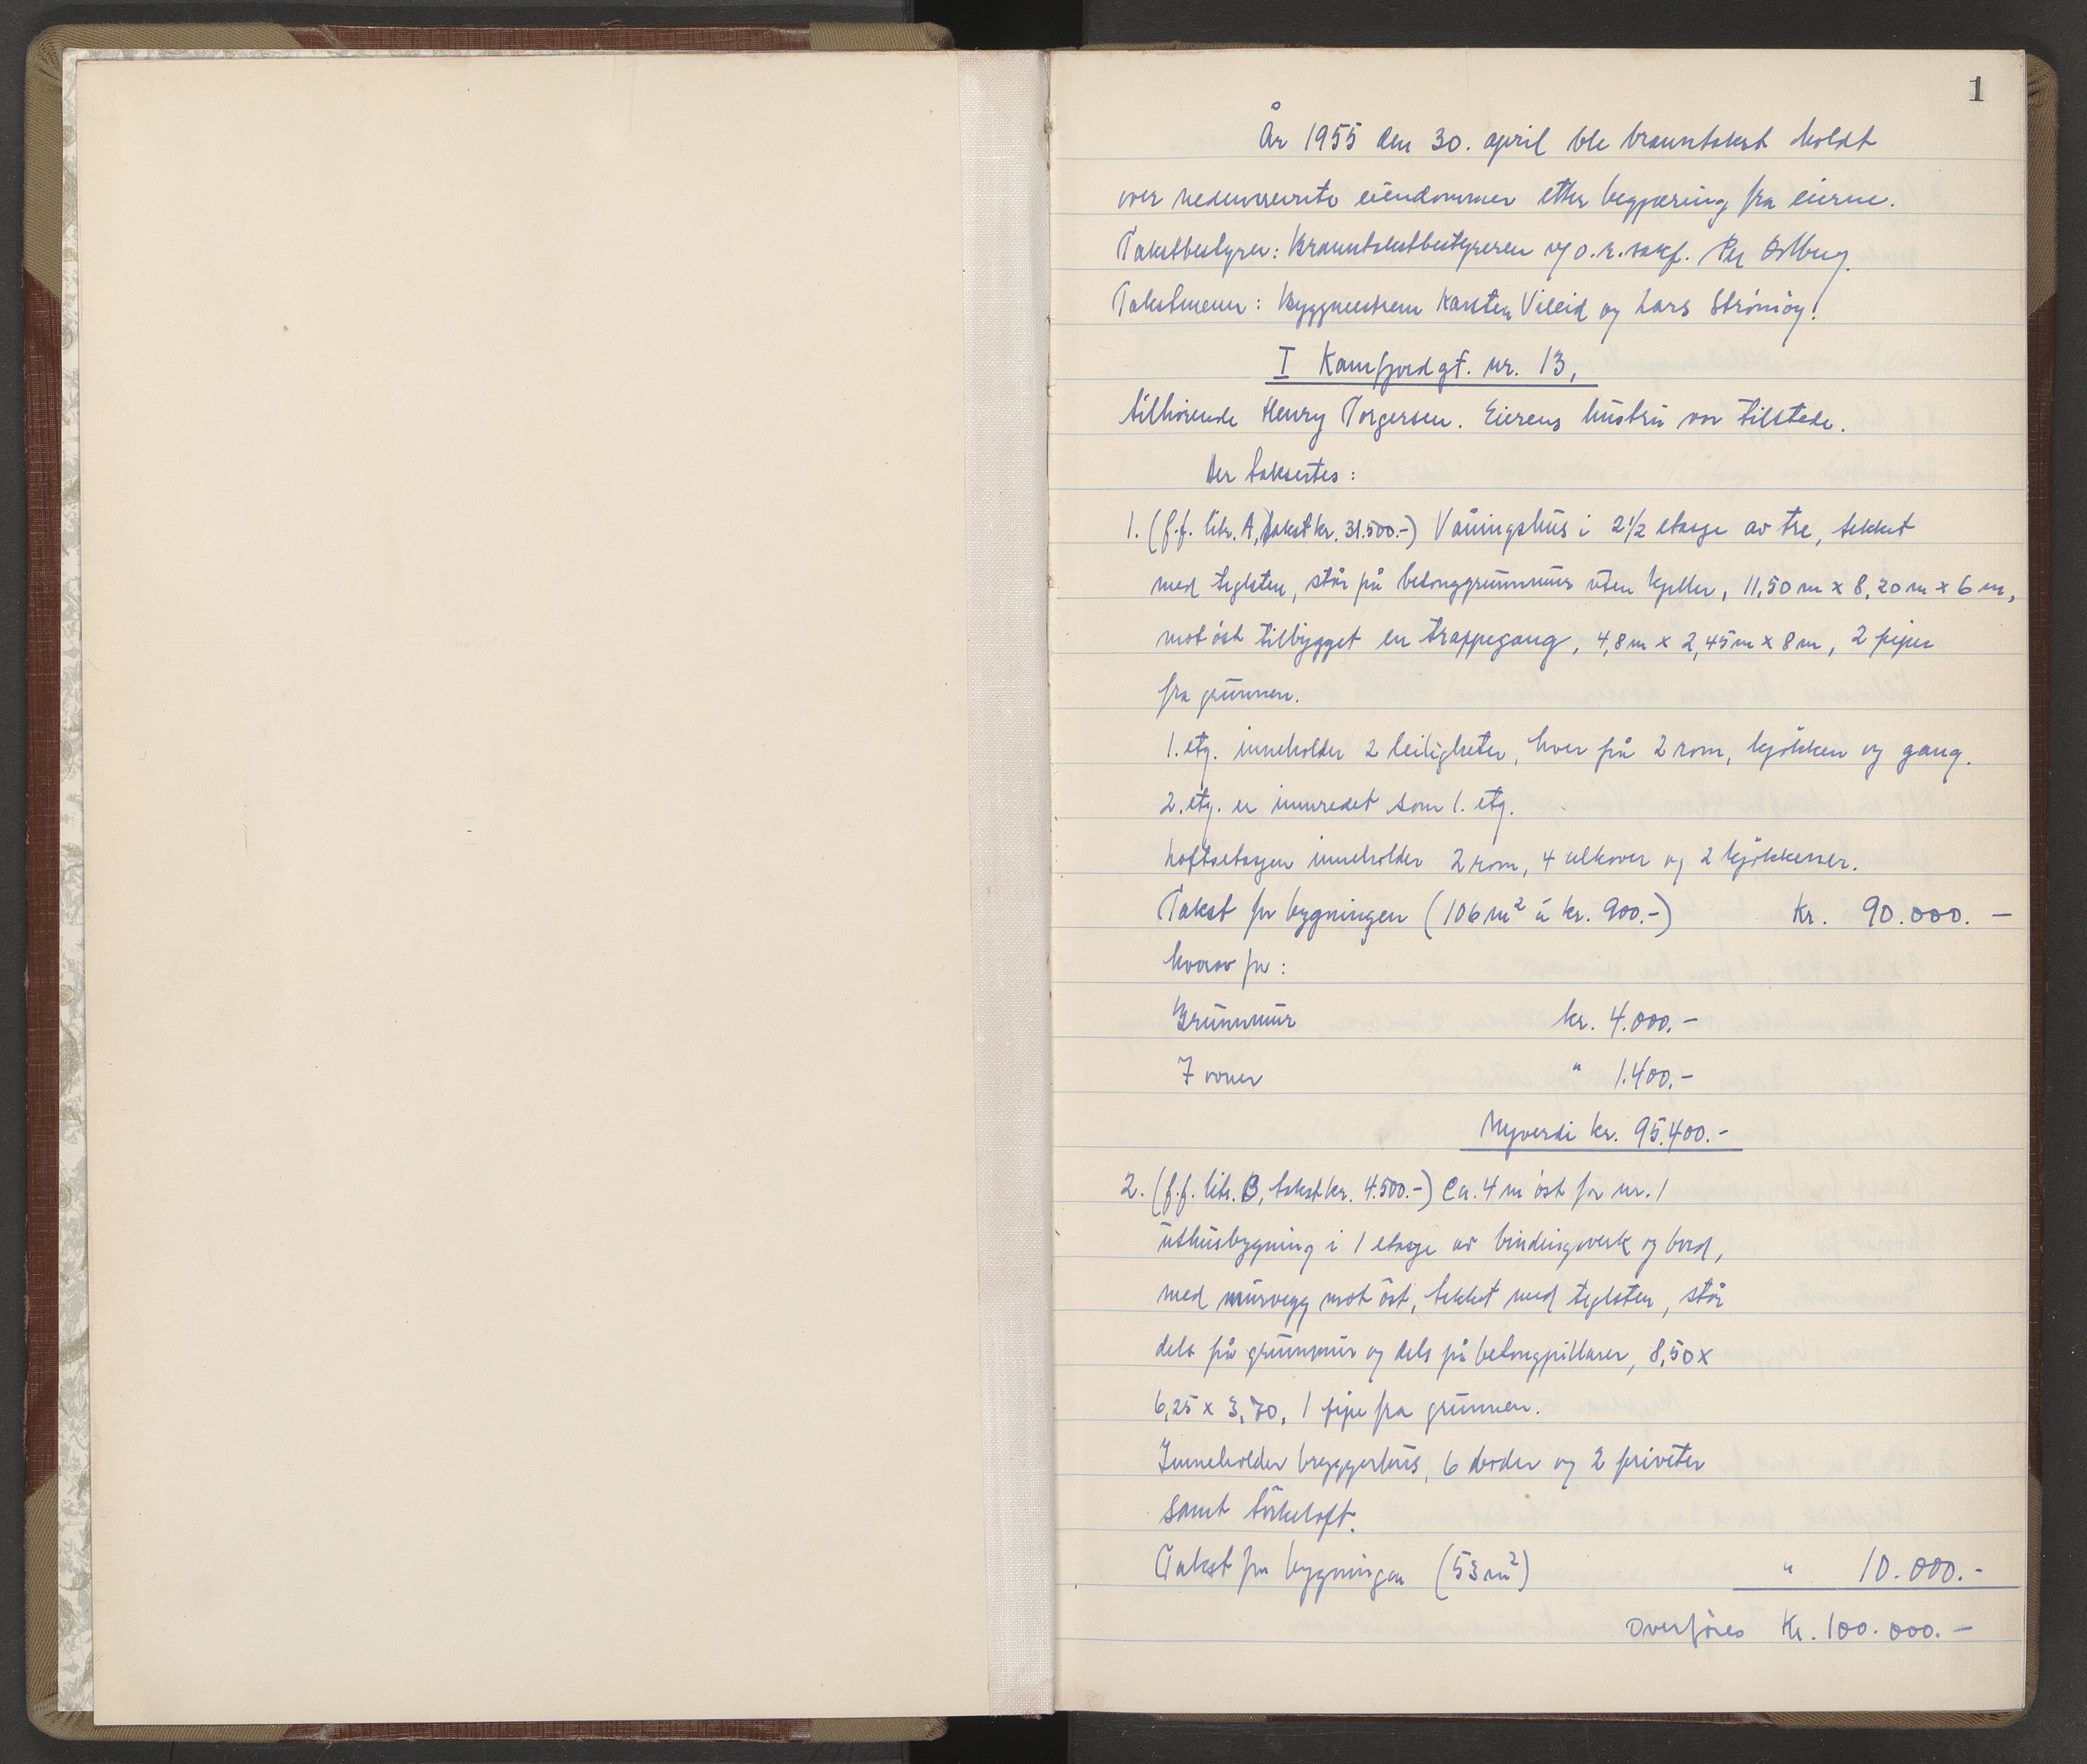 1
År 1955 den 30. april ble branntakst holdt
over nedennevnte eiendommer etter begjæring fra eierne.
Takstbestyrer: Branntakstbestyreren v/ o.r.sakf. Per
Takstmenn: Byggmestrene Karsten Vileid og Lars Strömöy.
I Kamfjordgt. nr. 13,
tilhörende Henry Torgersen. Eierens hustru var tilstede.
Der taksertes:
1. (f.f. litr. A, takst kr. 31.500.-) Våningshus i 2 1/2 etasje av tre, tekket
med teglsten, står på betonggrunnmur uten kjeller, 11,50 m x 8,20 m x 6 m,
mot öst tilbygget en trappegang, 4,8 m x 2,45 m x 8 m, 2 piper
fra grunnen.
1. etg. inneholder 2 leiligheter, hver på 2 rom, kjökken og gang.
2. etg. er innredet som 1. etg.
Loftsetasjen inneholder 2 rom, 4 alkover og 2 kjökkener.
Takst for bygningen (106 m² á kr. 900.-) Kr. 90.000. —
hvorav for:
Grunnmur kr. 4.000.-
7 ovner " 1.400.-
Nyverdi kr. 95.400.-
2. (f.f. litr. B, takst kr. 4.500.-) Ca. 4 m öst for nr. 1
uthusbygning i 1 etasje av bindingsverk og bord,
med murvegg mot öst, tekket med teglsten, står
dels på grunnmur og dels på betongpillarer, 8,50 x
6,25 x 3,70, 1 pipe fra grunnen.
Inneholder bryggerhus, 6 boder og 2 priveter
samt törkeloft.
Takst for bygningen (53 m²) " 10.000.-
Overföres Kr. 100.000. —